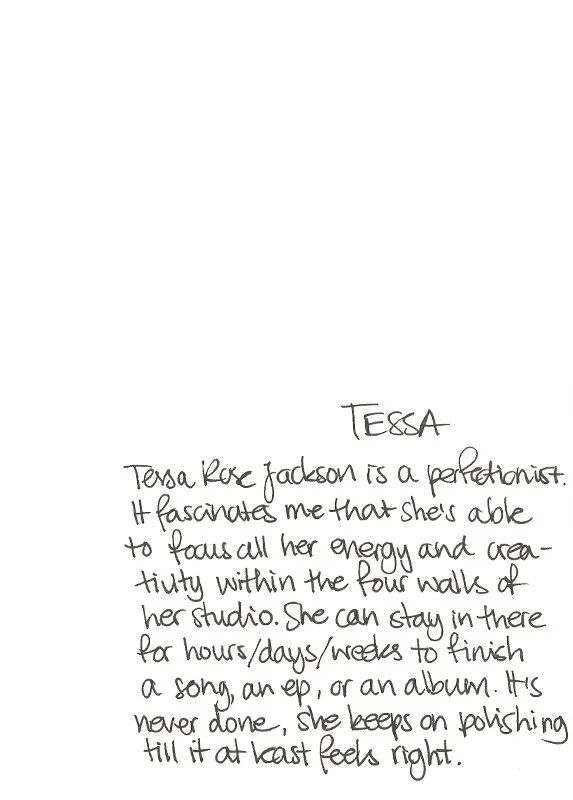 TESSA
Tessa Rose Jackson is a perfectionist.
It fascinates me that she's able
to focus all her energy and crea-
tivity within the four walls of
her studio. She can stay in there
for hours/days/weeks to finish
a song, an ep, or an album. It's
never done, she keeps on polishing
till it at least feels right.